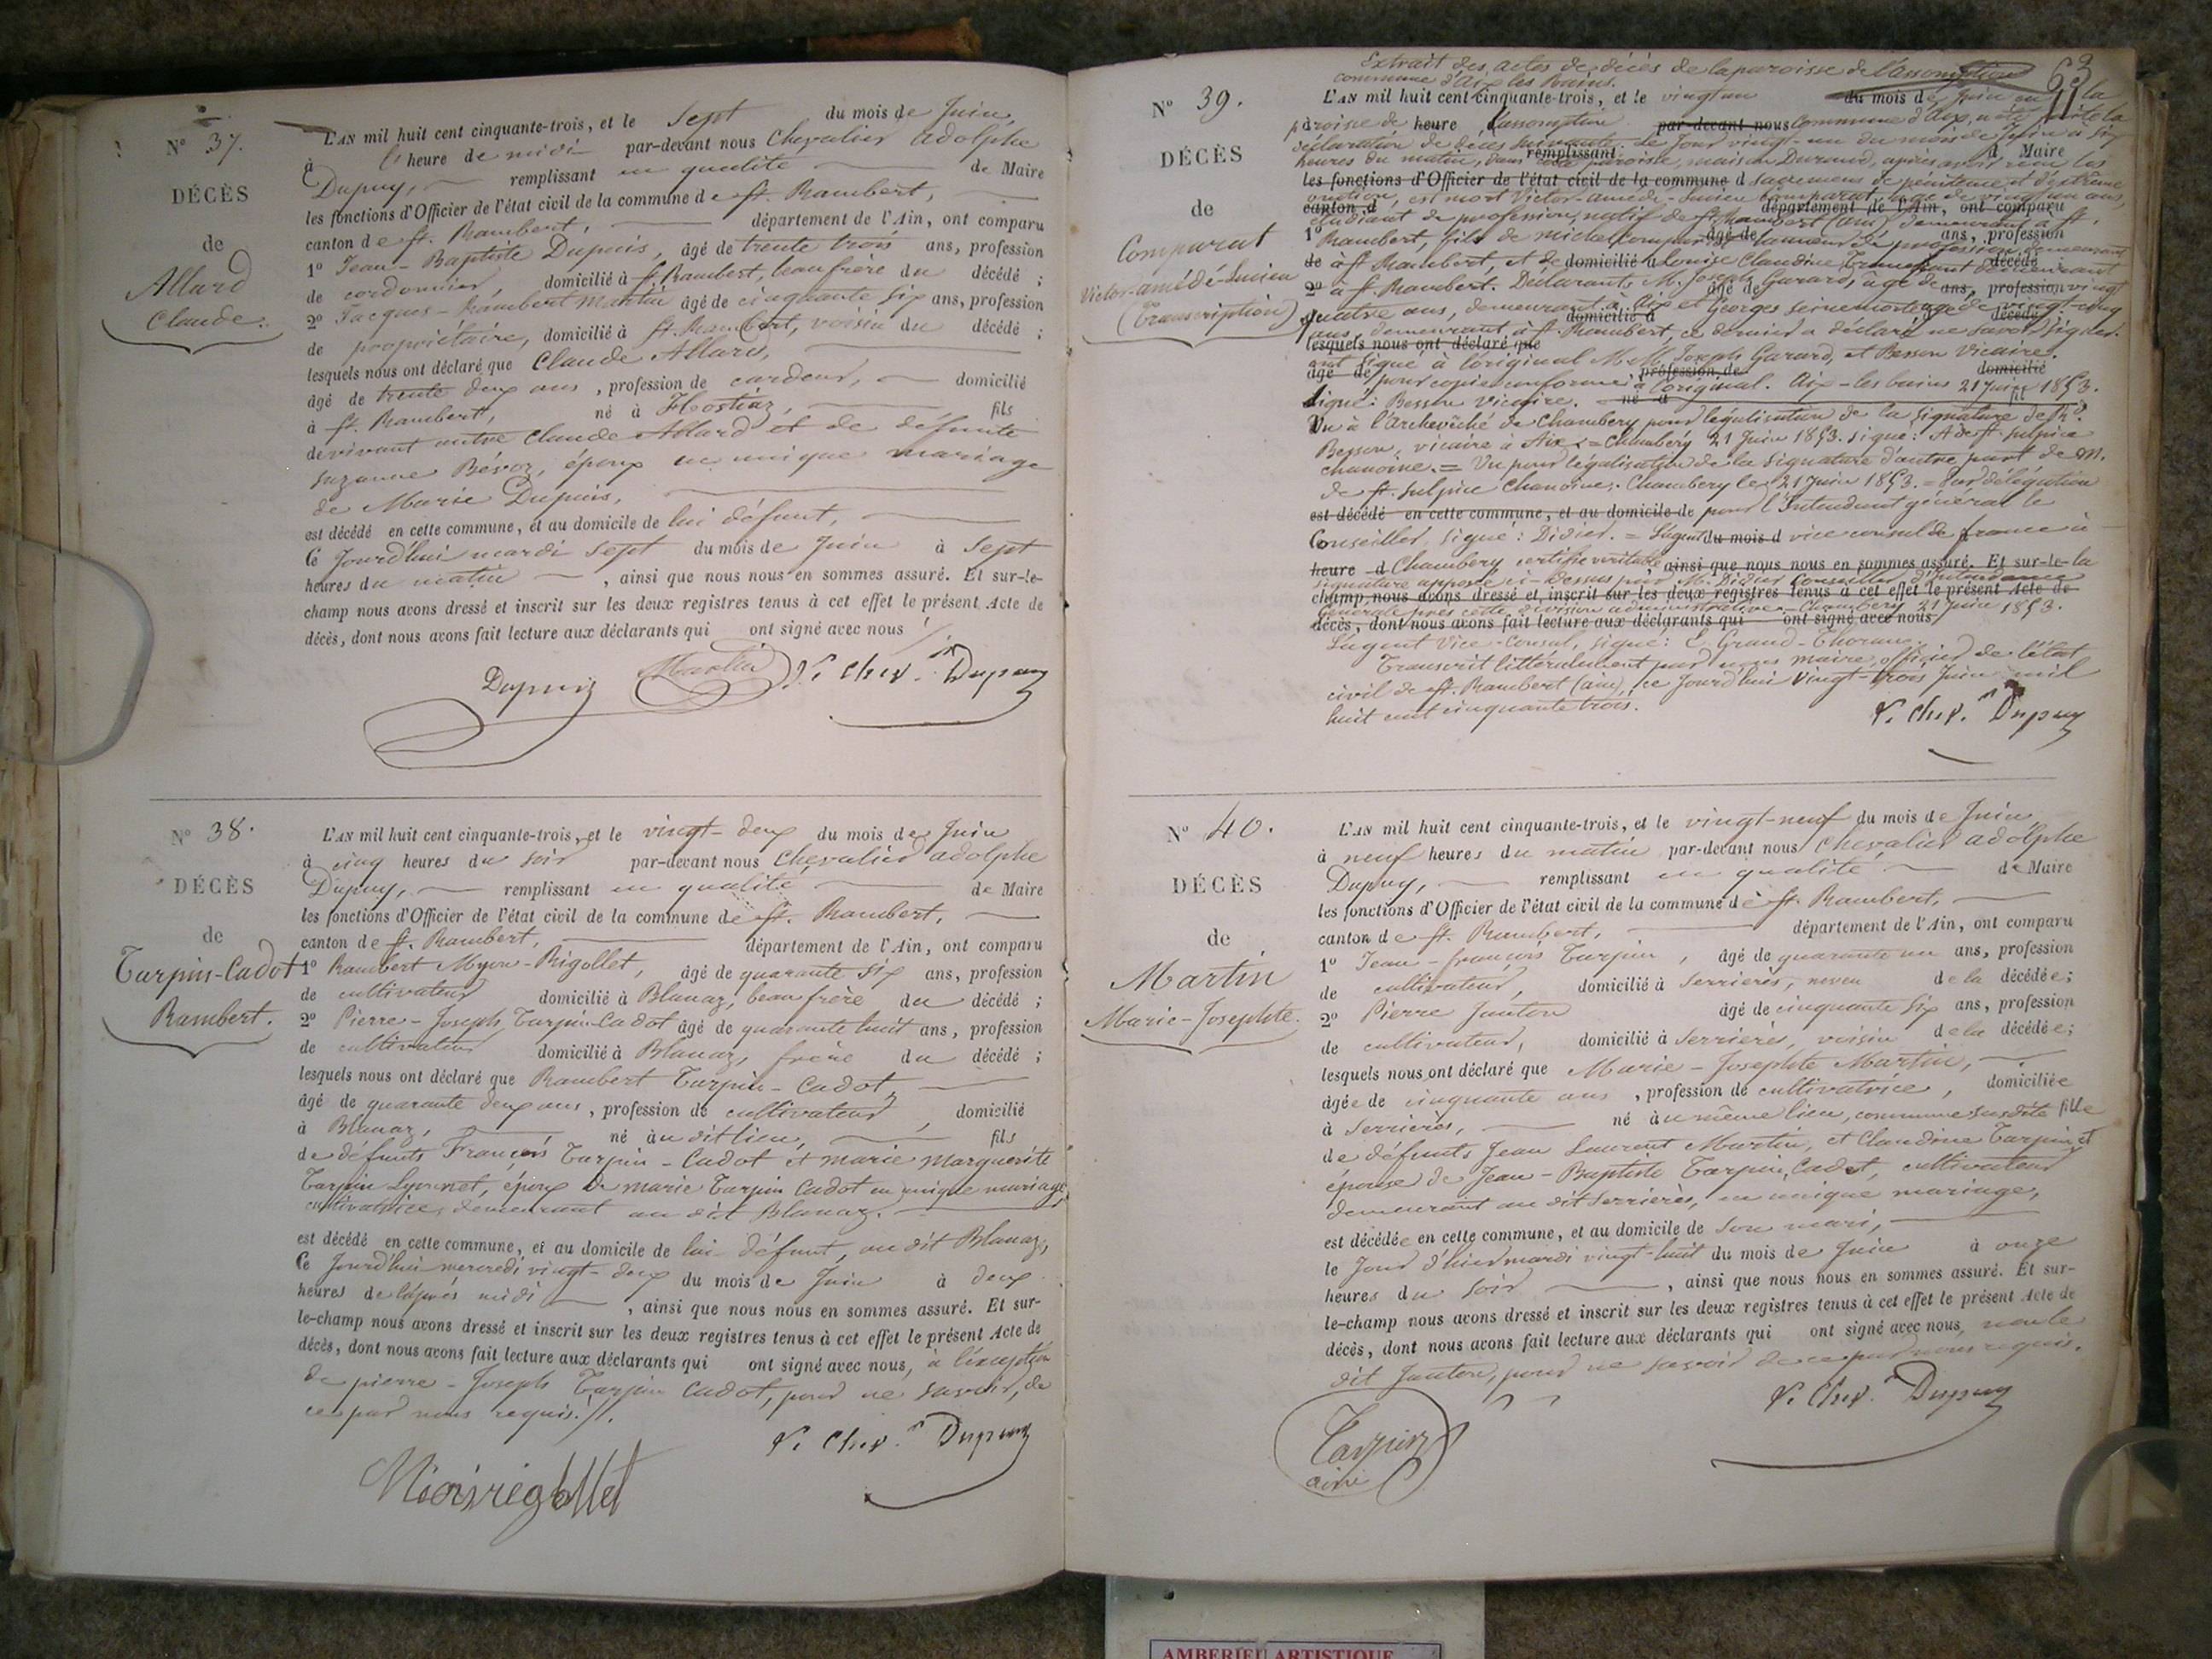 N° 37.
DÉCÈS
de
Allard
Claude.
L'AN mil huit cent cinquante-trois, et le sept du mois de Juin,
à l'heure de midi par-devant nous Chevalier Adolphe
Dupuy, remplissant en qualité de Maire
les fonctions d'Officier de l'état civil de la commune de St. Rambert,
canton de St. Rambert, département de l'Ain, ont comparu
1° Jean-Baptiste Dupuis, âgé de trente trois ans, profession
de cordonnier, domicilié à St. Rambert, beau frère du décédé ;
2° Jacques-Rambert Martin âgé de cinquante six ans, profession
de propriétaire, domicilié à St. Rambert, voisin du décédé ;
lesquels nous ont déclaré que Claude Allard,
âgé de trente deux ans, profession de cardeur, domicilié
à St. Rambert, né à Hostiaz, fils
de vivant autre Claude Allard et de défunte
Suzanne Bévoz, époux en unique mariage
de Marie Dupuis,
est décédé en cette commune, et au domicile de lui défunt,
Ce Jourd'hui mardi sept du mois de Juin à sept
heures du matin, ainsi que nous nous en sommes assuré. Et sur-le-
champ nous avons dressé et inscrit sur les deux registres tenus à cet effet le présent Acte de
décès, dont nous avons fait lecture aux déclarants qui ont signé avec nous
Dupuis Martin Chev. Dupuy
N° 38.
DÉCÈS
de
Turpin-Cadot
Rambert.
L'AN mil huit cent cinquante-trois, et le vingt-deux du mois de Juin
à cinq heures du soir par-devant nous Chevalier Adolphe
Dupuy, remplissant en qualité de Maire
les fonctions d'Officier de l'état civil de la commune de St. Rambert,
canton de St. Rambert, département de l'Ain, ont comparu
1° Rambert Myon-Rigollet, âgé de quarante six ans, profession
de cultivateur domicilié à Blanaz, beau frère du décédé ;
2° Pierre-Joseph Turpin-Cadot âgé de quarante huit ans, profession
de cultivateur domicilié à Blanaz, frère du décédé ;
lesquels nous ont déclaré que Rambert Turpin-Cadot,
âgé de quarante deux ans, profession de cultivateur, domicilié
à Blanaz, né au dit lieu, fils
de défunts François Turpin-Cadot et marie Marguerite
Turpin Lyonnet, époux de marie Turpin Cadot en unique mariage,
cultivatrice, demeurant au dit Blanaz.
est décédé en cette commune, et au domicile de lui défunt, au dit Blanaz,
Ce Jourd'hui mercredi vingt-deux du mois de Juin à deux
heures de l'après midi, ainsi que nous nous en sommes assuré. Et sur-
le-champ nous avons dressé et inscrit sur les deux registres tenus à cet effet le présent Acte de
décès, dont nous avons fait lecture aux déclarants qui ont signé avec nous, à l'exception
de pierre-Joseph Turpin Cadot, pour ne savoir, de
ce par nous requis.
Chev. Dupuy
63
N° 39.
DÉCÈS
de
Comparat
Victor-amédé-Lucien
(Transcription)
Extrait des actes de décès de la paroisse de l'assomption
commune d'Aix les Bains.
L'AN mil huit cent cinquante-trois, et le vingt un du mois de Juin en la
paroisse de heure l'assomption par-devant nous commune d'Aix, a été faite la
déclaration de décès suivante. Le Jour vingt-un du mois de Juin à six
heures du matin, dans cette paroisse, maison Durand, après avoir reçu les remplissant d Maire
les fonctions d'Officier de l'état civil de la commune d sacremens de pénitence et d'extrême
onction, est mort Victor-amédé-Lucien Comparat, âgé de vingt un ans,
canton d département de l'Ain, ont comparu
étudiant de profession, natif de St. Rambert (ain) demeurant à St.
1° Rambert, fils de michel Comparat âgé de tanneur de profession demeurant ans, profession
de à St. Rambert, et de domicilié à Louise Claudine demeurant décédé
2° à St. Rambert. Déclarants M. Joseph Garard, âgé de ans, profession vingt
quatre ans, demeurant à Aix et Georges âgé de vingt-cinq domicilié à décédé
ans, demeurant à St. Rambert, ce dernier a déclaré ne savoir signer.
lesquels nous ont déclaré que
ont signé à l'original M.M. Joseph Garard, et Besson Vicaire.
âgé de profession de domicilié
pour copie conforme à l'original. Aix-les bains 21 Juin 1853.
Signé: Besson Vicaire. né à fil
Vu à l'Archevêché de Chambery pour légalisation de la signature de Rd.
Besson, vicaire à Aix. = Chambéry 21 Juin 1853. signé: A de St. Sulpice
chanoine. = Vu pour légalisation de la signature d'autre part de M.
de St. Sulpice Chanoine. Chambery le 21 Juin 1853. = Par délégation
est décédé en cette commune, et au domicile de pour l'Intendant général le
Conseiller, signé: Didier. = L'agent du mois d vice consul de france à
heure d Chambery certifie véritable ainsi que nous nous en sommes assuré. Et sur-le- la
signature apposée ci-dessus par M. Didier Conseiller d'Intendance
champ nous avons dressé et inscrit sur les deux registres tenus à cet effet le présent Acte de
Générale près cette division administrative. Chambery 21 Juin 1853.
décès, dont nous avons fait lecture aux déclarants qui ont signé avec nous
L'agent Vice-Consul, signé: E. Grand-Thorane.
Transcrit littéralement par nous maire, officier de l'état
civil de St. Rambert (ain), ce Jourd'hui vingt-trois Juin mil
huit cent cinquante trois.
Chev. Dupuy
N° 40.
DÉCÈS
de
Martin
Marie-Josephte.
L'AN mil huit cent cinquante-trois, et le vingt-neuf du mois de Juin,
à neuf heures du matin par-devant nous Chevalier Adolphe
Dupuy, remplissant en qualité de Maire
les fonctions d'Officier de l'état civil de la commune de St. Rambert,
canton de St. Rambert, département de l'Ain, ont comparu
1° Jean-françois Turpin, âgé de quarante un ans, profession
de cultivateur, domicilié à Serrières, neveu de la décédée;
2° Pierre Janton âgé de cinquante six ans, profession
de cultivateur, domicilié à Serrières, voisin de la décédée;
lesquels nous ont déclaré que Marie-Josephte Martin,
âgée de cinquante ans, profession de cultivatrice, domiciliée
à Serrières, né au même lieu, commune susdite fille
de défunts Jean Laurent Martin, et Claudine Turpin, et
épouse de Jean-Baptiste Turpin Cadet, cultivateur
demeurant au dit Serrières, en unique mariage,
est décédée en cette commune, et au domicile de son mari,
le Jour d'hier mardi vingt-huit du mois de Juin à onze
heures du soir, ainsi que nous nous en sommes assuré. Et sur-
le-champ nous avons dressé et inscrit sur les deux registres tenus à cet effet le présent Acte de
décès, dont nous avons fait lecture aux déclarants qui ont signé avec nous, non le
dit Janton, pour ne savoir de ce par nous requis.
Chev. Dupuy
Turpin
ainé
AMBERIEU ARTISTIQUE